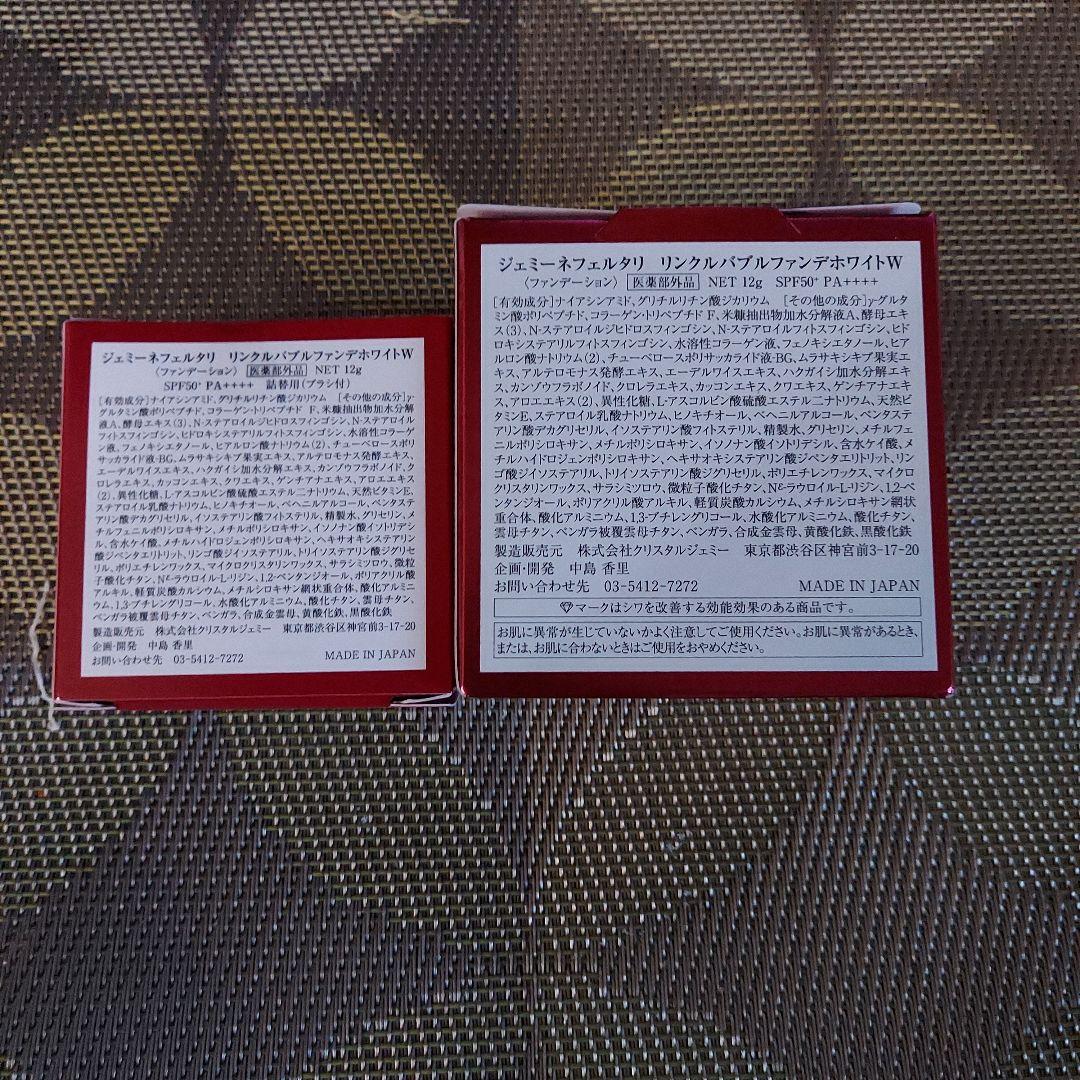 ジェミーネフェルタリ リンクルバブルファンデホワイトW
〈ファンデーション〉 医薬部外品 NET 12g
SPF50+ PA++++ 詰替用(ブラシ付)
[有効成分]ナイアシンアミド、グリチルリチン酸ジカリウム [その他の成分]γ-
グルタミン酸ポリペプチド、コラーゲン・トリペプチド F、米糠抽出物加水分解
液A、酵母エキス(3)、N-ステアロイルジヒドロスフィンゴシン、N-ステアロイル
フィトスフィンゴシン、ヒドロキシステアリルフィトスフィンゴシン、水溶性コラーゲ
ン液、フェノキシエタノール、ヒアルロン酸ナトリウム(2)、チューベロースポリ
サッカライド液・BG、ムラサキシキブ果実エキス、アルテロモナス発酵エキス、
エーデルワイスエキス、ハクガイシ加水分解エキス、カンゾウフラボノイド、ク
ロレラエキス、カッコンエキス、クワエキス、ゲンチアナエキス、アロエエキス
(2)、異性化糖、L-アスコルビン酸硫酸エステル二ナトリウム、天然ビタミンE、
ステアロイル乳酸ナトリウム、ヒノキチオール、ベヘニルアルコール、ペンタステ
アリン酸デカグリセリル、イソステアリン酸フィトステリル、精製水、グリセリン、メ
チルフェニルポリシロキサン、メチルポリシロキサン、イソノナン酸イソトリデシ
ル、含水ケイ酸、メチルハイドロジェンポリシロキサン、ヘキサオキシステアリン
酸ジペンタエリトリット、リンゴ酸ジイソステアリル、トリイソステアリン酸ジグリセ
リル、ポリエチレンワックス、マイクロクリスタリンワックス、サラシミツロウ、微粒
子酸化チタン、Nε-ラウロイル-L-リジン、1,2-ペンタンジオール、ポリアクリル酸
アルキル、軽質炭酸カルシウム、メチルシロキサン網状重合体、酸化アルミニ
ウム、1,3-ブチレングリコール、水酸化アルミニウム、酸化チタン、雲母チタン、
ベンガラ被覆雲母チタン、ベンガラ、合成金雲母、黄酸化鉄、黒酸化鉄
製造販売元 株式会社クリスタルジェミー 東京都渋谷区神宮前3-17-20
企画・開発 中島 香里
お問い合わせ先 03-5412-7272 MADE IN JAPAN
ジェミーネフェルタリ リンクルバブルファンデホワイトW
〈ファンデーション〉 医薬部外品 NET 12g SPF50+ PA++++
[有効成分]ナイアシンアミド、グリチルリチン酸ジカリウム [その他の成分]γ-グルタ
ミン酸ポリペプチド、コラーゲン・トリペプチド F、米糠抽出物加水分解液A、酵母エキ
ス(3)、N-ステアロイルジヒドロスフィンゴシン、N-ステアロイルフィトスフィンゴシン、ヒド
ロキシステアリルフィトスフィンゴシン、水溶性コラーゲン液、フェノキシエタノール、ヒア
ルロン酸ナトリウム(2)、チューベロースポリサッカライド液・BG、ムラサキシキブ果実エ
キス、アルテロモナス発酵エキス、エーデルワイスエキス、ハクガイシ加水分解エキ
ス、カンゾウフラボノイド、クロレラエキス、カッコンエキス、クワエキス、ゲンチアナエキ
ス、アロエエキス(2)、異性化糖、L-アスコルビン酸硫酸エステル二ナトリウム、天然
ビタミンE、ステアロイル乳酸ナトリウム、ヒノキチオール、ベヘニルアルコール、ペンタス
テアリン酸デカグリセリル、イソステアリン酸フィトステリル、精製水、グリセリン、メチルフ
ェニルポリシロキサン、メチルポリシロキサン、イソノナン酸イソトリデシル、含水ケイ酸、
メチルハイドロジェンポリシロキサン、ヘキサオキシステアリン酸ジペンタエリトリット、リン
ゴ酸ジイソステアリル、トリイソステアリン酸ジグリセリル、ポリエチレンワックス、マイクロ
クリスタリンワックス、サラシミツロウ、微粒子酸化チタン、Nε-ラウロイル-L-リジン、1,2-
ペンタンジオール、ポリアクリル酸アルキル、軽質炭酸カルシウム、メチルシロキサン網状
重合体、酸化アルミニウム、1,3-ブチレングリコール、水酸化アルミニウム、酸化チタン、
雲母チタン、ベンガラ被覆雲母チタン、ベンガラ、合成金雲母、黄酸化鉄、黒酸化鉄
製造販売元 株式会社クリスタルジェミー 東京都渋谷区神宮前3-17-20
企画・開発 中島 香里
お問い合わせ先 03-5412-7272 MADE IN JAPAN
マークはシワを改善する効能効果のある商品です。
お肌に異常が生じていないかよく注意してご使用ください。お肌に異常があるとき、
または、お肌に合わないときはご使用をおやめください。